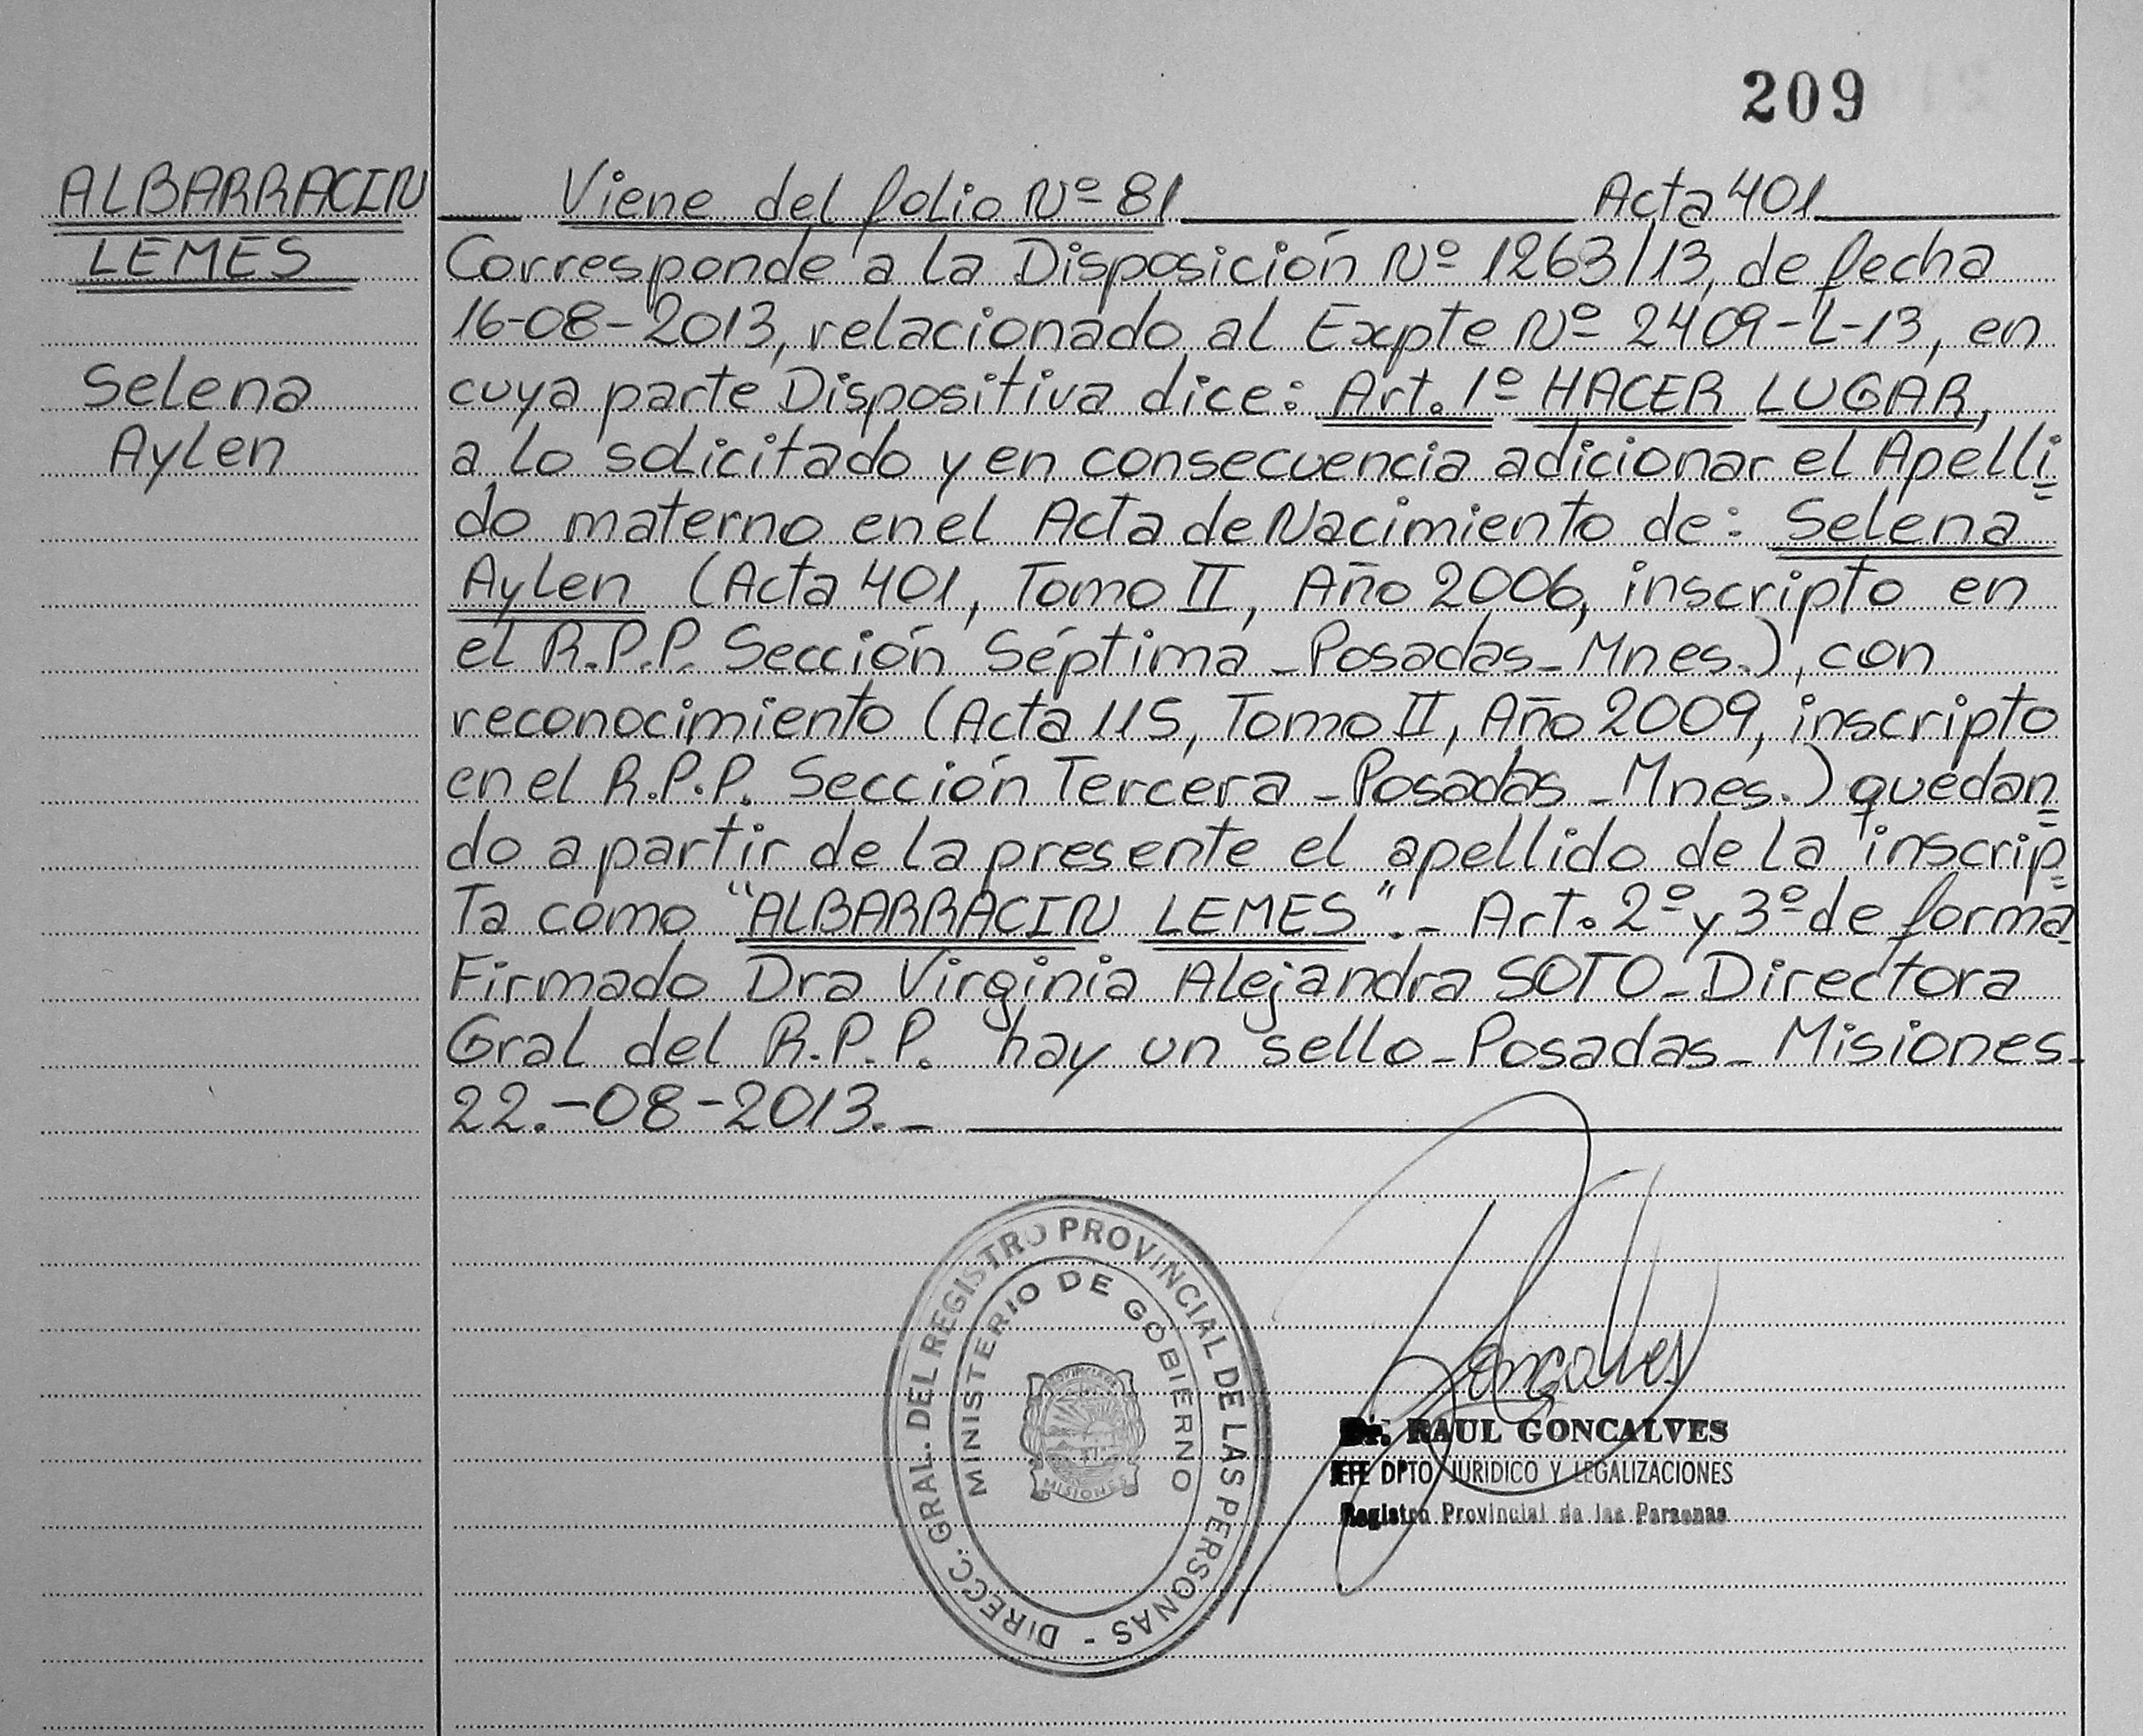 209
ALBARRACIN
LEMES
Selena
Aylen
Viene del folio Nº 81 Acta 401
Corresponde a la Disposición Nº 1263/13, de fecha
16-08-2013, relacionado al Expte Nº 2409-L-13, en
cuya parte Dispositiva dice: Art. 1º HACER LUGAR,
a lo solicitado y en consecuencia adicionar el Apelli=
do materno en el Acta de Nacimiento de: Selena
Aylen (Acta 401, Tomo II, Año 2006, inscripto en
el R.P.P. Sección Séptima - Posadas - Mnes.), con
reconocimiento (Acta 115, Tomo II, Año 2009, inscripto
en el R.P.P. Sección Tercera - Posadas - Mnes.) quedan=
do a partir de la presente el apellido de la inscrip=
ta como "ALBARRACIN LEMES".- Art. 2º y 3º de forma
Firmado Dra Virginia Alejandra SOTO - Directora
Gral del R.P.P. hay un sello - Posadas - Misiones -
22.-08-2013.-
DIRECC. GRAL. DEL REGISTRO PROVINCIAL DE LAS PERSONAS -
MINISTERIO DE GOBIERNO
PROVINCIA DE
MISIONES
Goncalves
Dr. RAUL GONCALVES
JEFE DPTO JURIDICO Y LEGALIZACIONES
Registro Provincial de las Personas